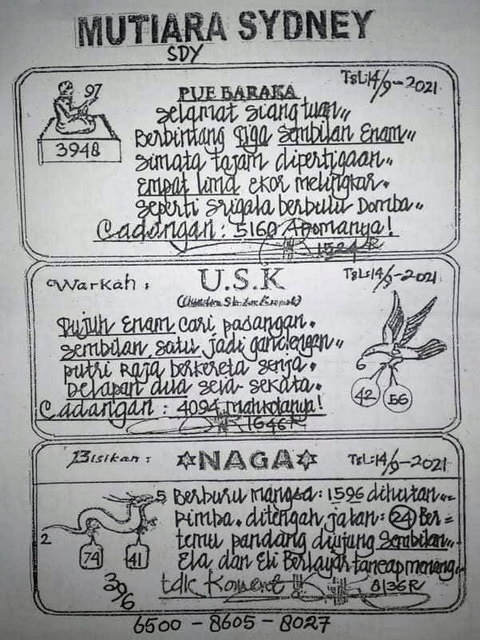 MUTIARA SYDNEY
SDY
97
3948
PUE BARAKA
TGL:14/9-2021
Selamat Siang tuan,,
Berbintang Tiga Sembilan Enam,,
Simata tajam dipertigaan,,
Empat Lima ekor melingkar.
Seperti Srigala berbulu Domba,,
Cadangan : 5160 Apomanya!
1524R
Warkah :
U.S.K
TGL:14/9-2021
Tujuh Enam cari pasangan.
Sembilan satu jadi gandengan,,
Putri Raja berkereta senja.
Delapan dua seia-sekata.
Cadangan : 4094 mahkotanya!
1646R
42
56
Bisikan :
NAGA
TGL:14/9-2021
Berburu mangsa : 1596 dihutan
Rimba. ditengah jalan : 24 Ber=
temu pandang diujung Sembilan
Ela, dan Eli Berlayar tancap menang
tdk Koment
8136R
2
5
74
41
396
6500 - 8605 - 8027